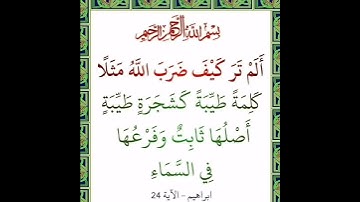 بسم الله الرحمن الرحيم
أَلَمْ تَرَ كَيْفَ ضَرَبَ اللَّهُ مَثَلًا
كَلِمَةً طَيِّبَةً كَشَجَرَةٍ طَيِّبَةٍ
أَصْلُهَا ثَابِتٌ وَفَرْعُهَا
فِي السَّمَاءِ
ابراهيم - الآية 24